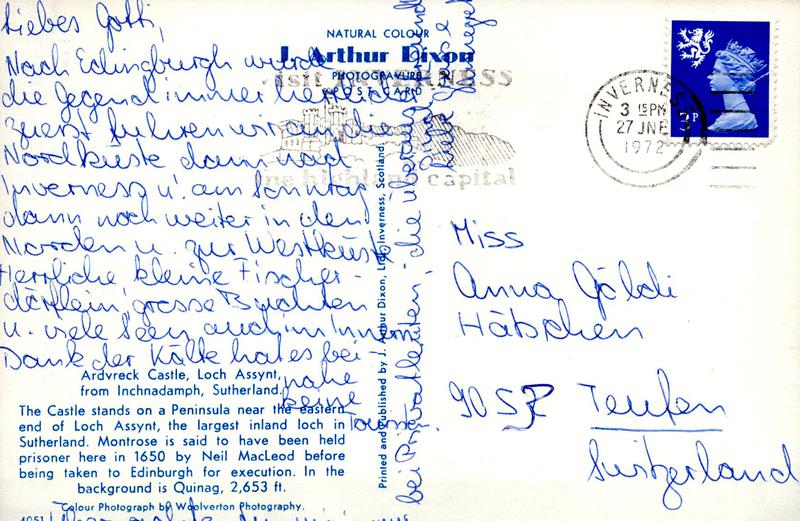 Liebes Gotti,
Nach Edingburgh wurde
die Gegend immer herrlicher
zuerst fuhren wir an die
Nordküste dann nach
Inverness u. am Sonntag
dann noch weiter in den
Norden u. zur Westküste
Herrliche kleine Fischer-
dörflein, grosse Buchten
u. viele Seen auch im Innern
Dank der Kälte hat es bei-
nahe
keine
Touristen.
bei Privatleuten, die überaus
NATURAL COLOUR
J. Arthur Dixon
PHOTOGRAVURE
POST CARD
Visit INVERNESS
the highland capital
Printed and Published by J. Arthur Dixon, Ltd., Inverness, Scotland
Ardvreck Castle, Loch Assynt,
from Inchnadamph, Sutherland.
The Castle stands on a Peninsula near the eastern
end of Loch Assynt, the largest inland loch in
Sutherland. Montrose is said to have been held
prisoner here in 1650 by Neil MacLeod before
being taken to Edinburgh for execution. In the
background is Quinag, 2,653 ft.
Colour Photograph by Woolverton Photography.
4051
INVERNESS
3 15PM
27 JNE
1972
3P
Miss
Anna Göldi
Häbschen
9052 Teufen
Switzerland